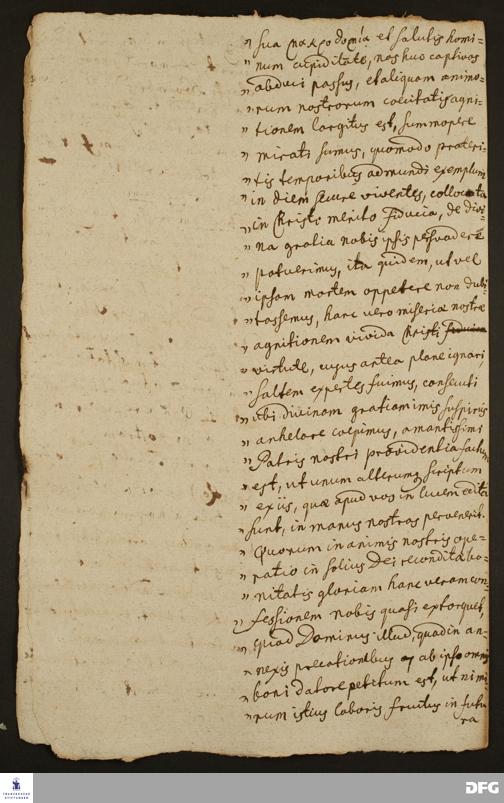 " sua μακροθυμία et salutis homi=
" num cupiditate, nos huc captivos
" abduci passus, et aliquam animo-
" rum nostrorum coecitatis agni-
" tionem largitus est, summopere
" mirati sumus, quomodo præteri-
" tis temporibus ad mundi exemplum
" in diem secure viventes, collocata
" in Christi merito fiducia, de divi-
" na gratia nobis ipsis persvadere
" potuerimus, ita quidem, ut vel
" ipsam mortem oppetere non dubi-
" tassemus, hanc vero miseriæ nostræ
" agnitionem vivida Christi
" virtute, cujus antea plane ignari,
" saltem expertes fuimus, consecuti
" ubi divinam gratiam imis suspiriis
" anhelare coepimus, amantissimi
" Patris nostri providentia factum
" est, ut unum alterumq scriptum
" ex iis, quæ apud vos in lucem edita
" sunt, in manus nostras pervenerit.
" Quorum in animis nostris ope-
" ratio in solius Dei recondita bo-
" nitatis gloriam hanc veram con-
" fessionem nobis quasi extorquet,
" quod Dominus illud, quod in an-
" nexis precationibus ab ipso omnis
" boni datore petitum est, ut nimi
" rum istius laboris fructus in futu
ra
TRANSCRIPTION
DFG